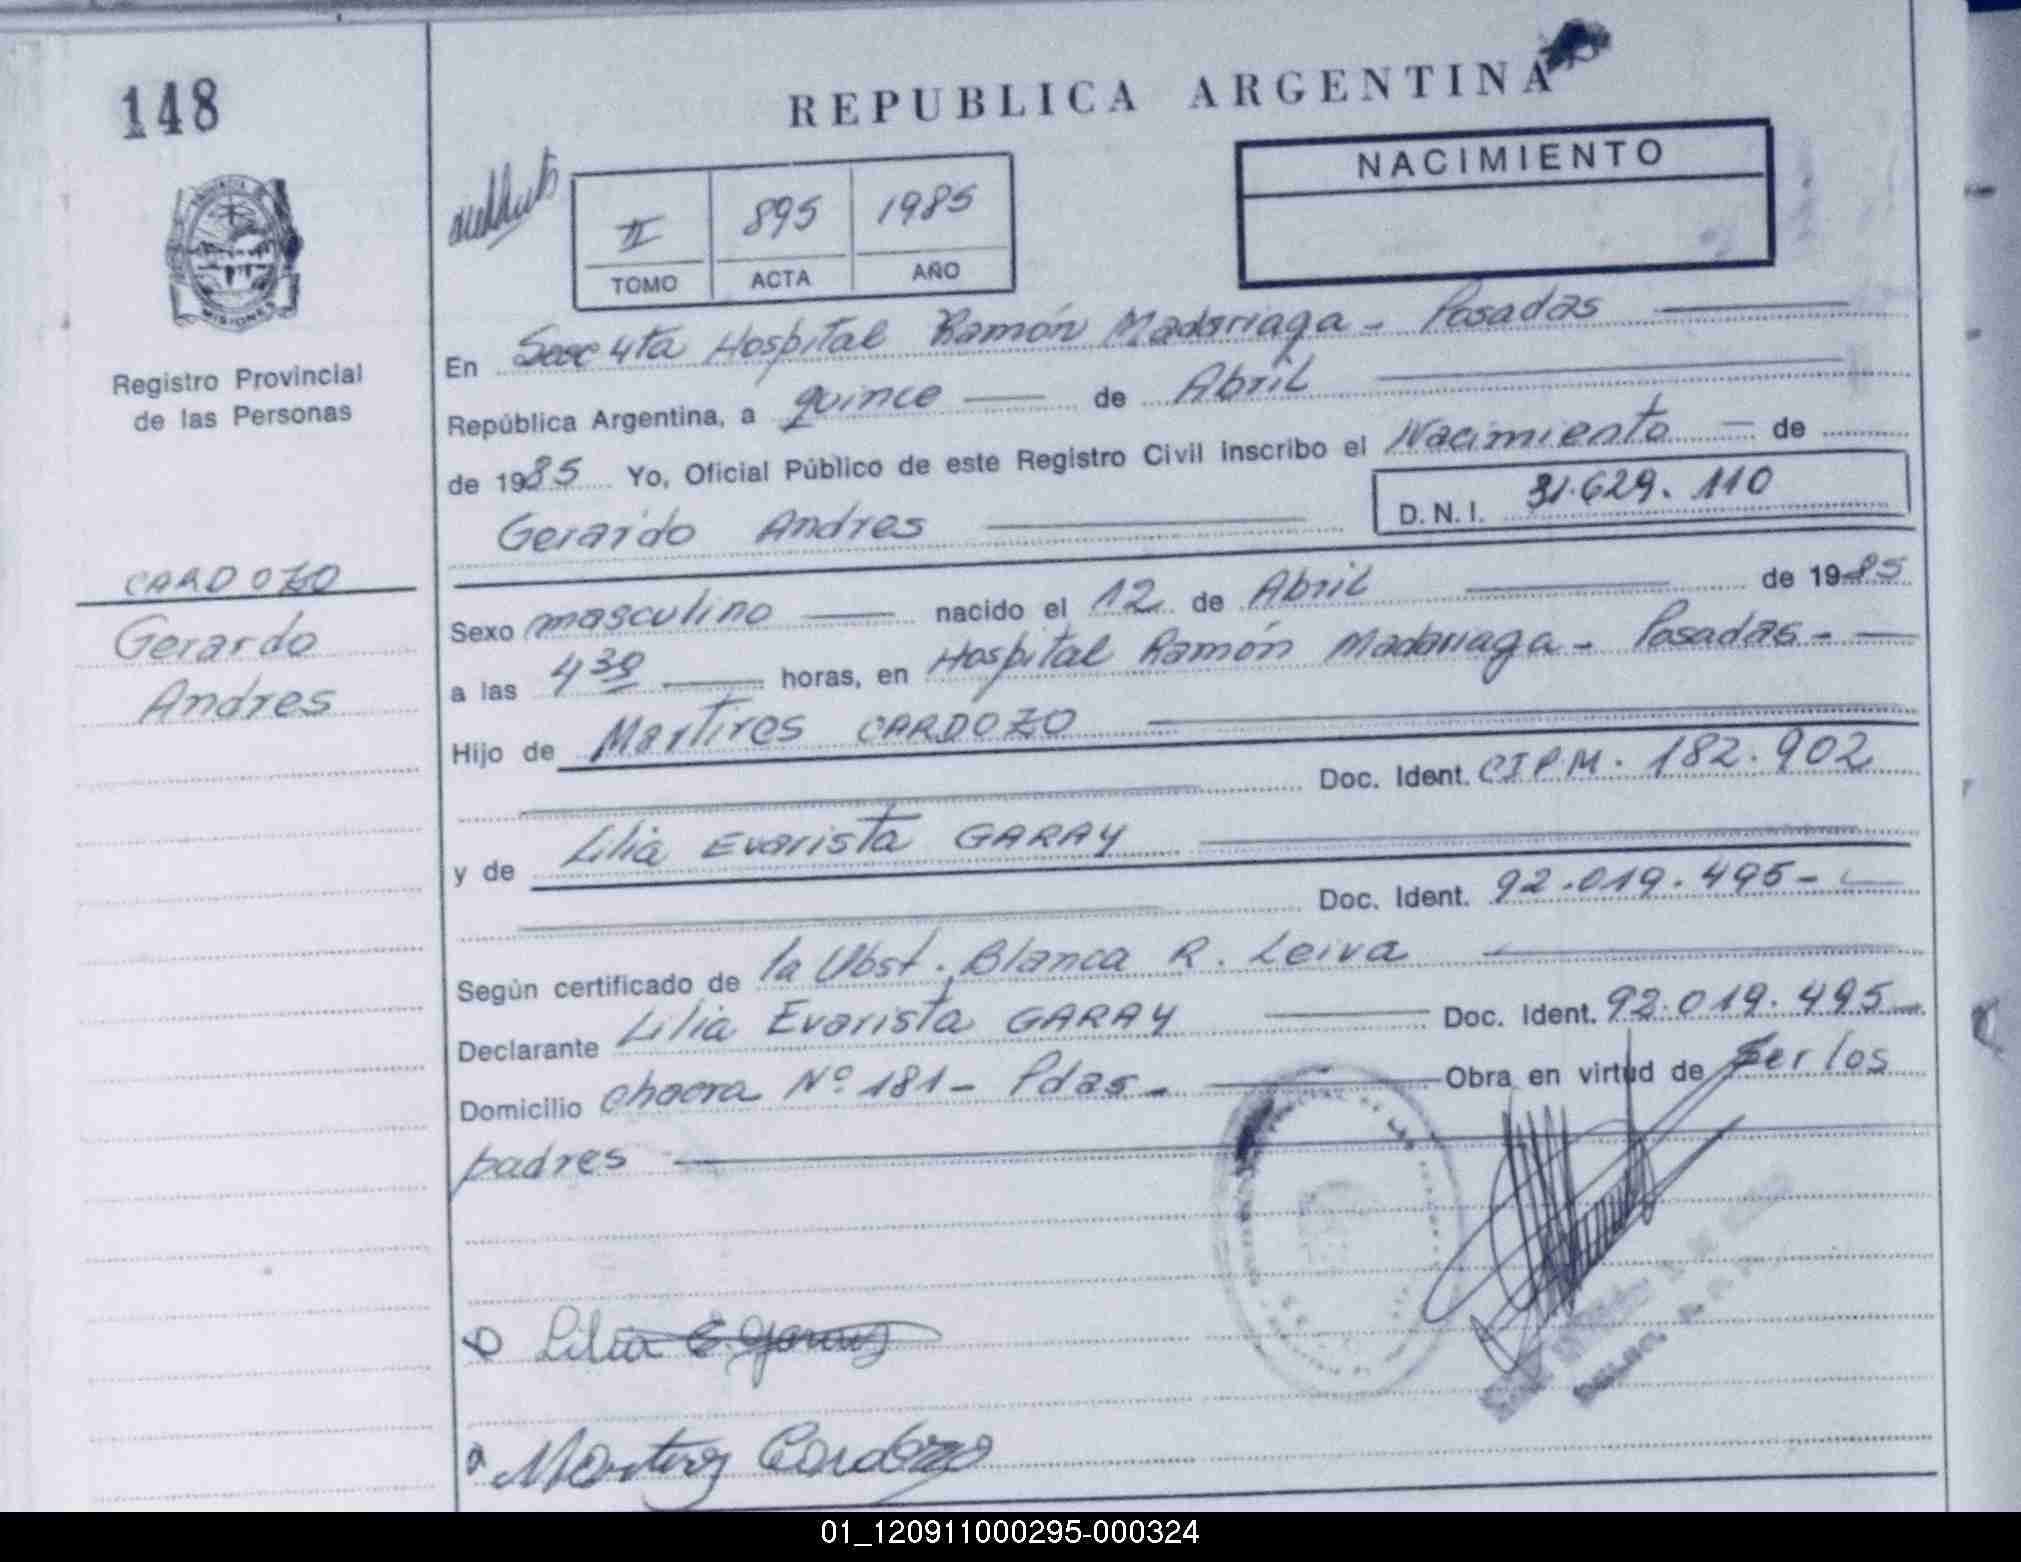 148
REPUBLICA ARGENTINA
NACIMIENTO
II 895 1985
TOMO ACTA AÑO
MISIONES
Registro Provincial
de las Personas
CARDOZO
Gerardo
Andres
En Secc 4ta Hospital Ramón Madariaga - Posadas
República Argentina, a quince de Abril
de 1985 Yo, Oficial Público de este Registro Civil inscribo el Nacimiento de
Gerardo Andres D.N.I. 31.629.110
Sexo masculino nacido el 12 de Abril de 1985
a las 4 30 horas, en Hospital Ramón Madariaga - Posadas -
Hijo de Martires CARDOZO
Doc. Ident. CIPM. 182.902
y de Lilia Evarista GARAY
Doc. Ident. 92.019.495 -
Según certificado de la Obst. Blanca R. Leiva
Declarante Lilia Evarista GARAY Doc. Ident. 92.019.495
Domicilio chacra Nº 181 - Pdas - Obra en virtud de ser los
padres
Lilia E. Garay
Martires Cardozo
01_120911000295-000324